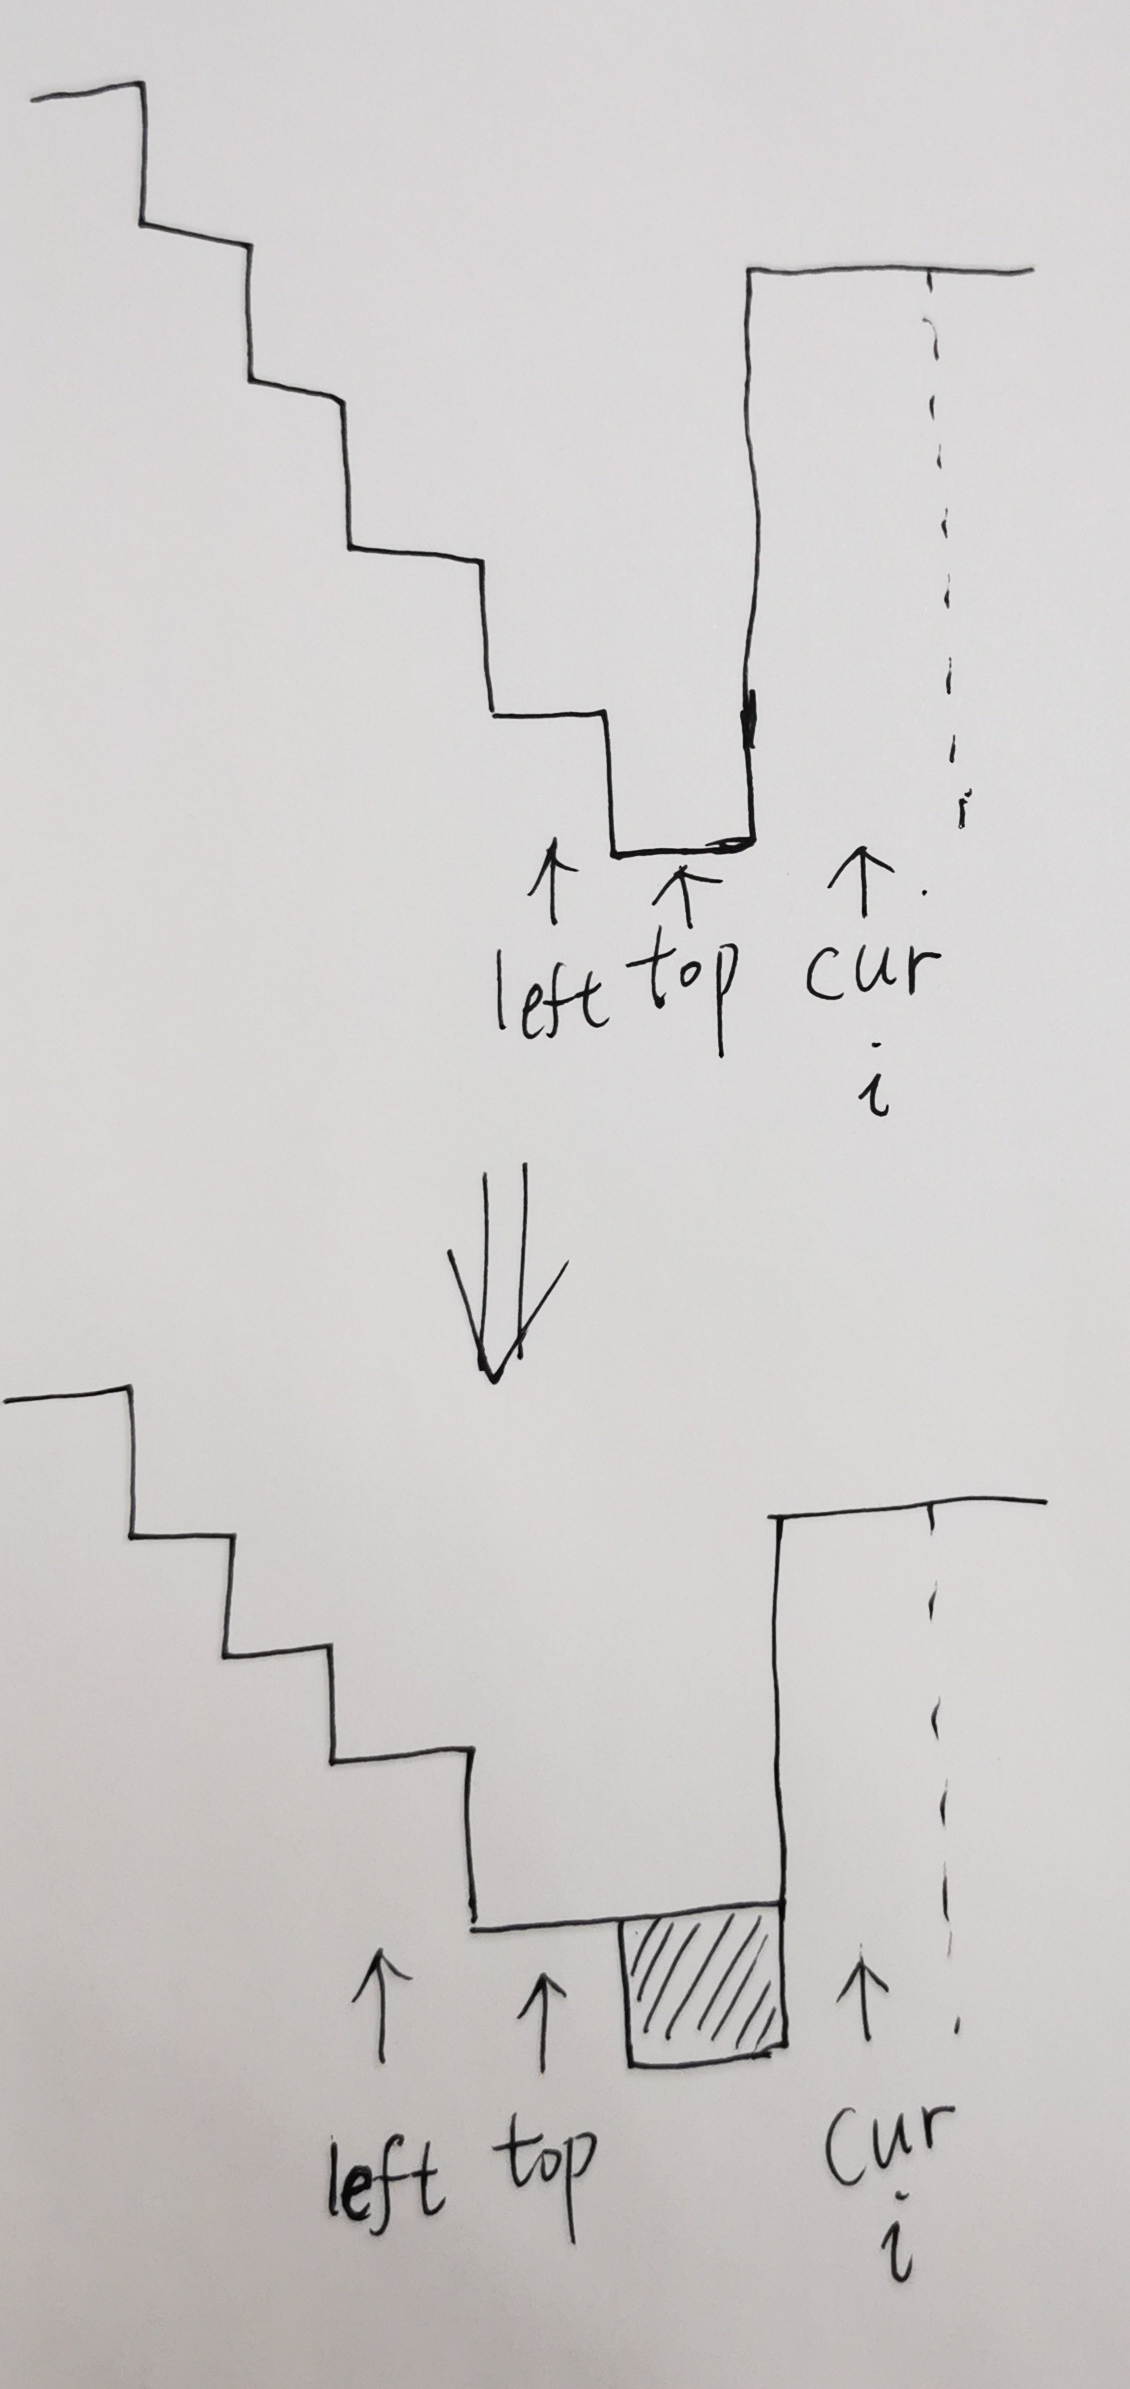 left top cur
i
left top cur
i